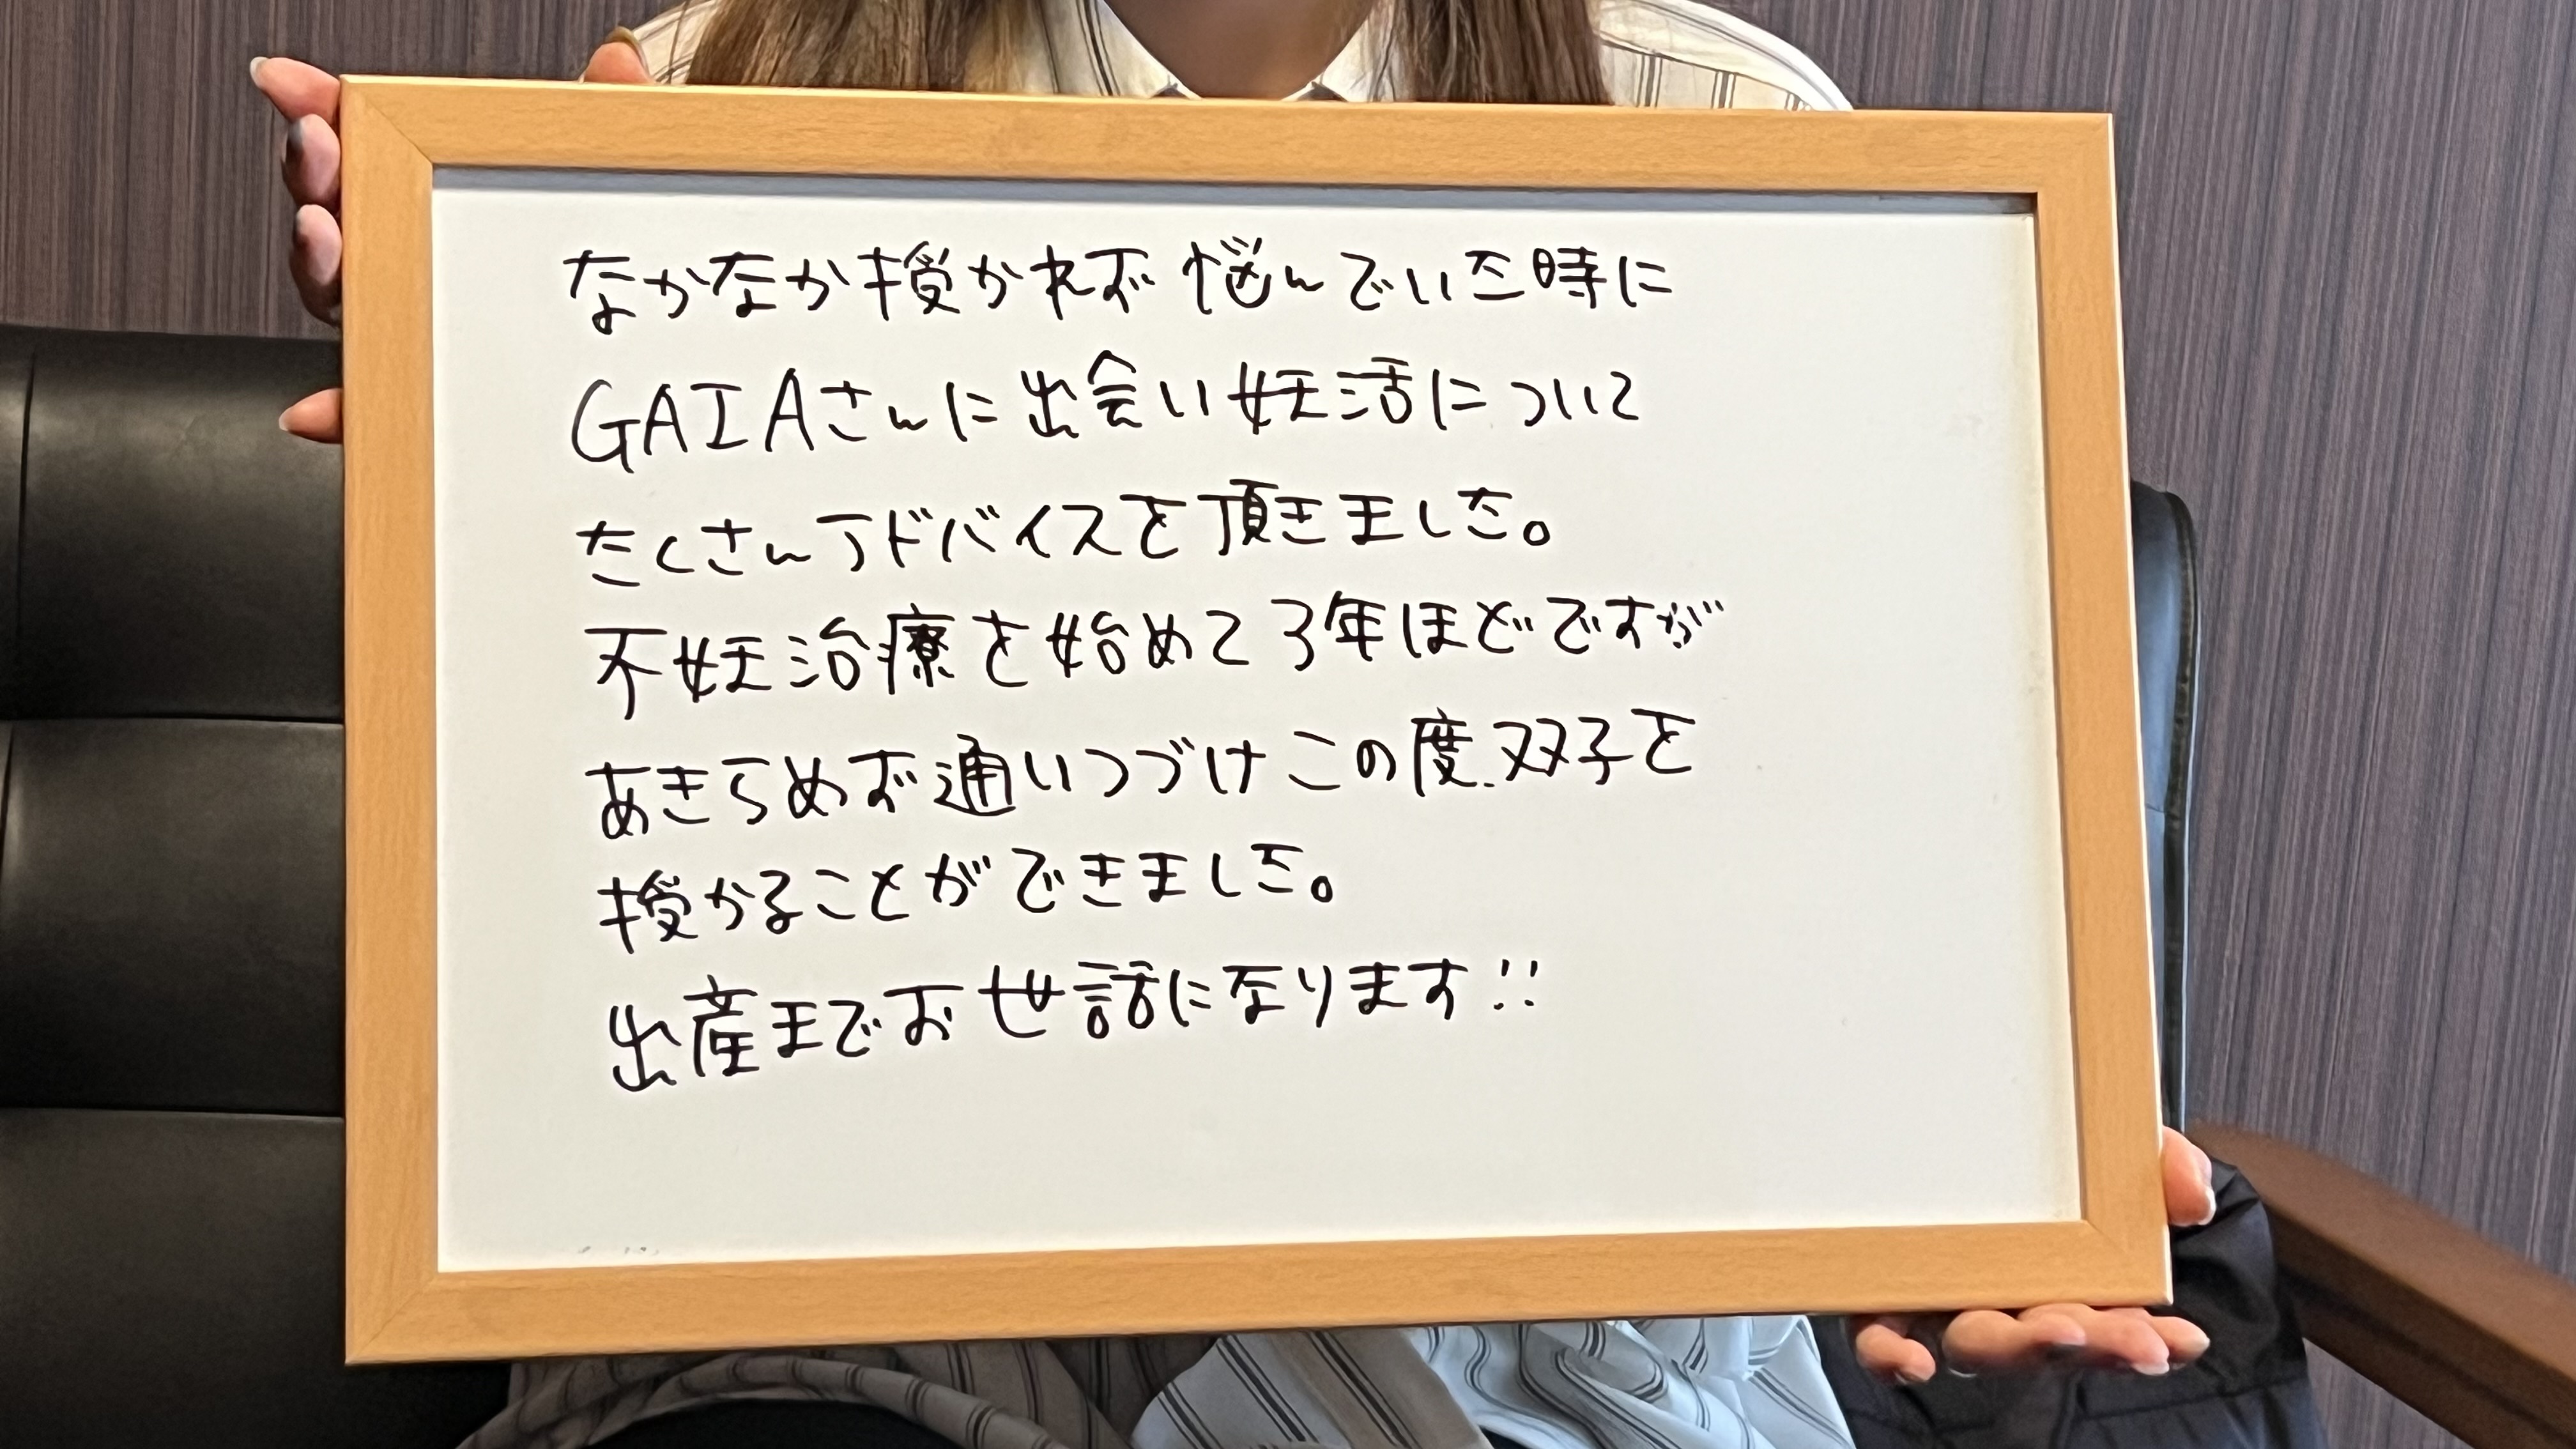 なかなか授かれず悩んでいた時に
GAIAさんに出会い妊活について
たくさんアドバイスを頂きました。
不妊治療を始めて3年ほどですが
あきらめず通いつづけこの度双子を
授かることができました。
出産までお世話になります!!